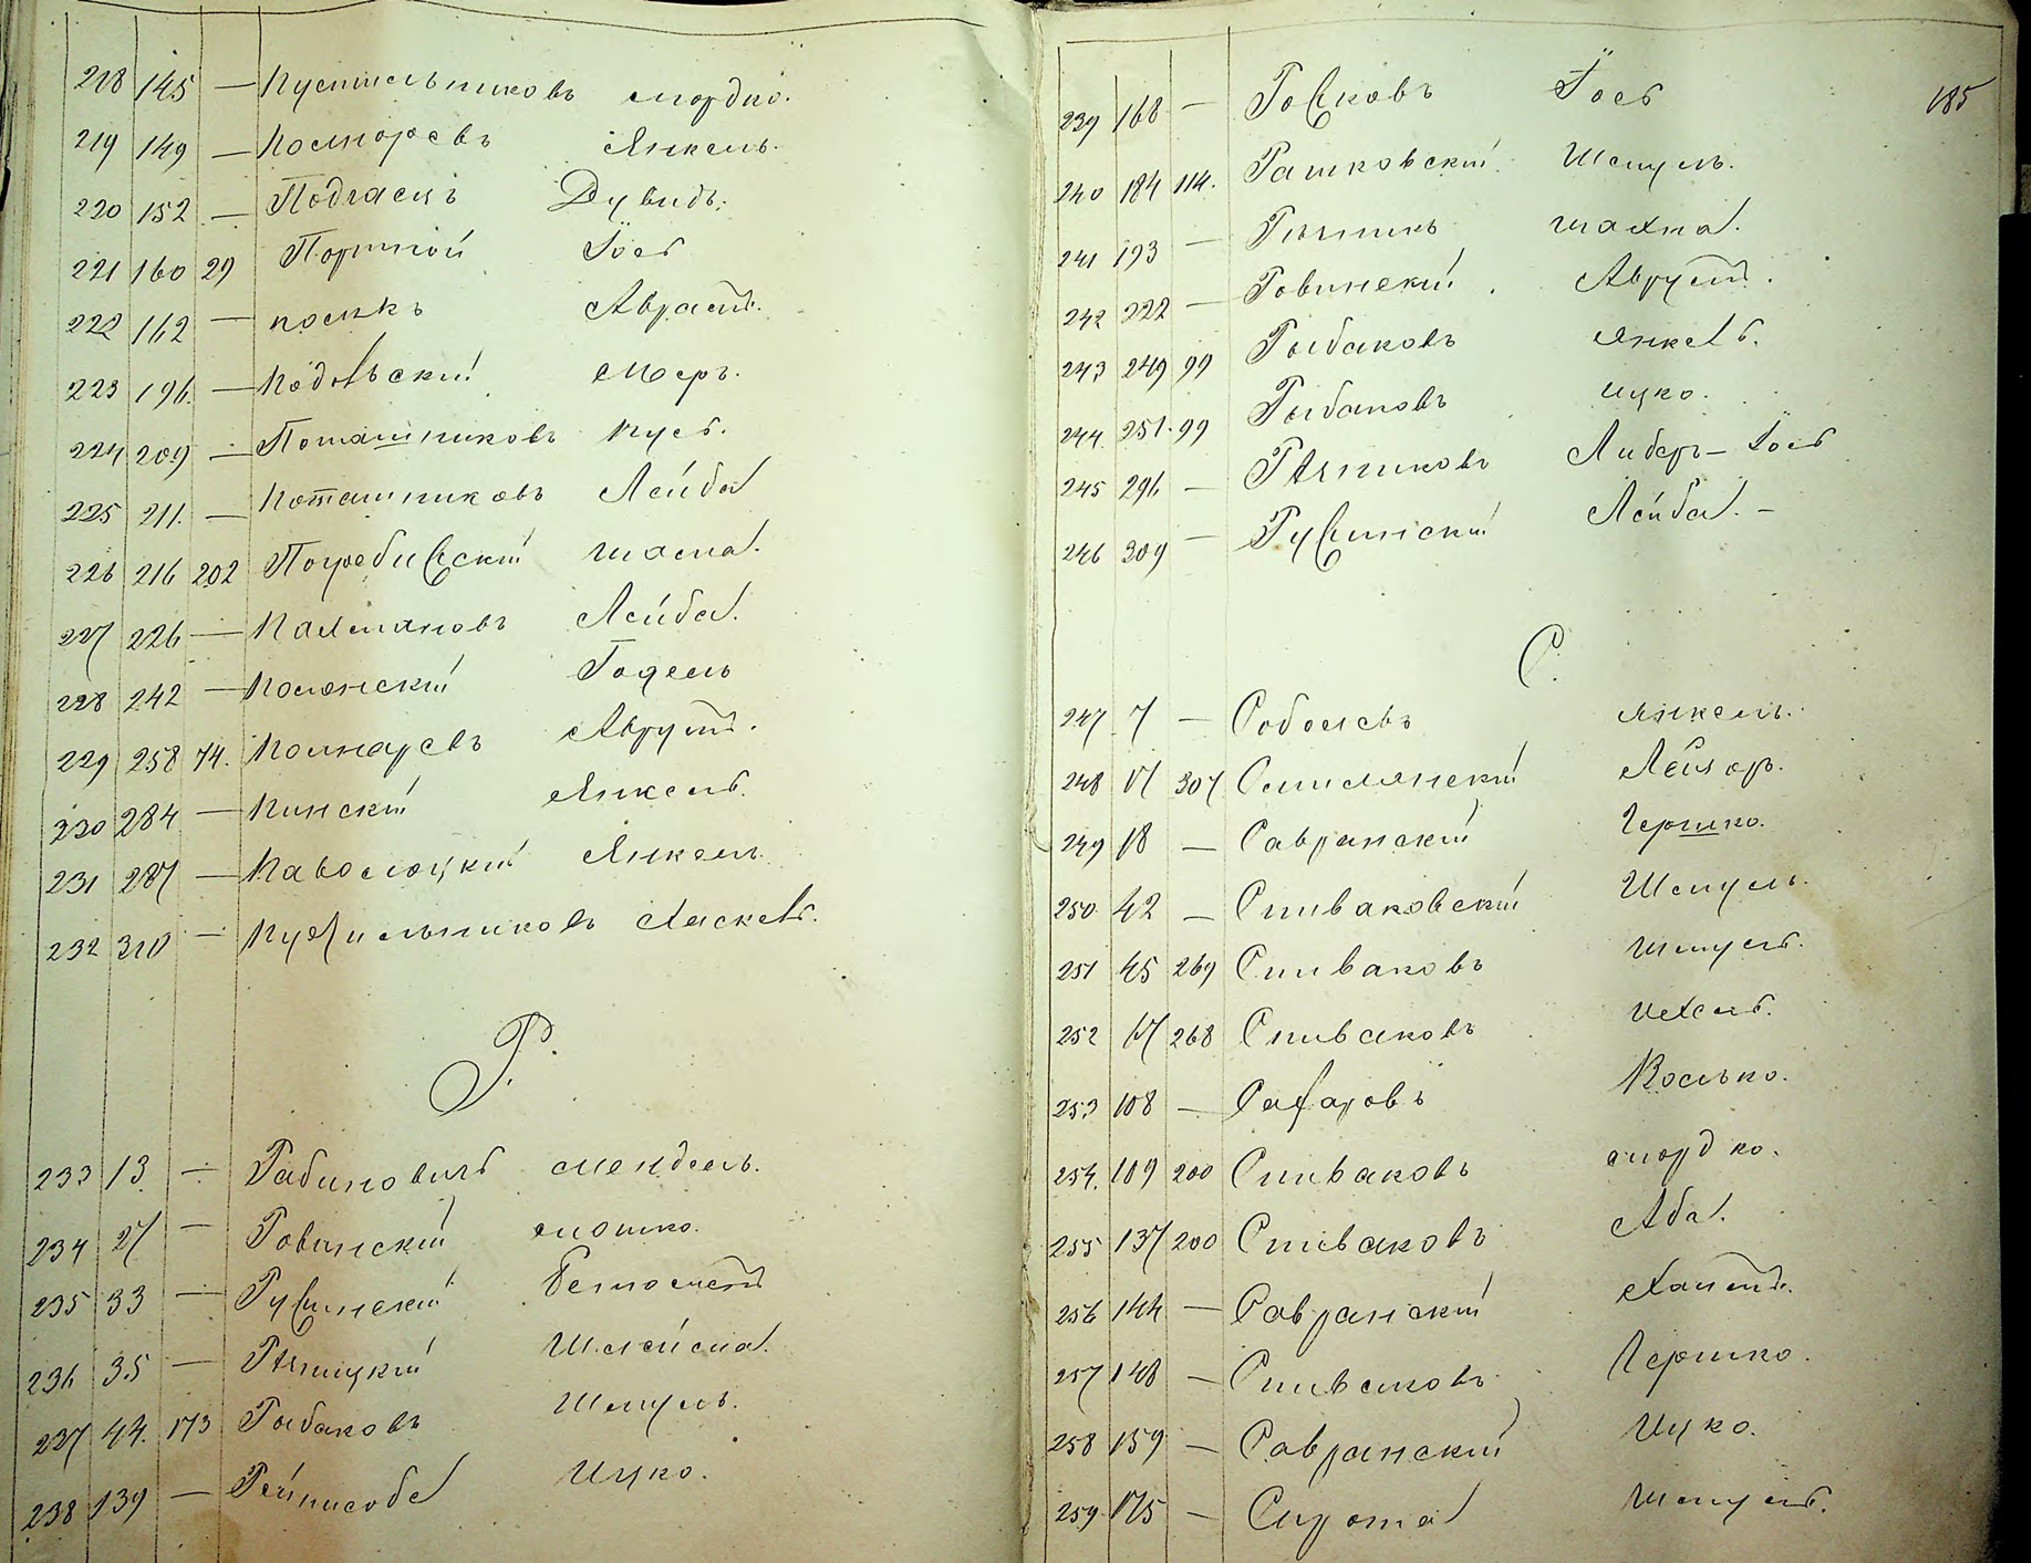 218 145 — Пустильниковъ Мордко.
219 149 — Помноревъ Янкель.
220 152 — Подгаецъ Дувидъ.
221 160 29 Портной Іось
222 162 — Авраамъ.
223 196 — Подольскій Мееръ.
224 209 — Поташниковъ Кусь.
225 211. — Поташниковъ Лейба
226 216 202 Погребивскій Шлема.
227 226 — Пахмановъ Лейба.
228 242 — Полонскій Годель
229 258 74. Понаревъ Аврумъ.
230 284 — Пинскій Янкель.
231 287 — Паволоцкій Янкель
232 310 — Хаскель.
Р.
233 13 — Рабиновичъ Мендель.
234 27 — Ровинскій Мошко.
235 33 — Рувинскій
236 35 — Рѣчицкій Шлейма.
237 44. 173 Рыбаковъ Шмуль.
238 139 — Ицко.
185
239 168 — Іось
240 184 114. Рашковскій Шмуль.
241 193 — Шахна.
242 222 — Ровинскій Аврумъ.
243 249 99 Рыбаковъ Янкель.
244. 251. 99 Рыбаковъ Ицко.
245 296 — Рѣзниковъ Либеръ-Іось
246 309 — Рувинскій Лейба. —
С.
247 7 — Соболевъ Янкель.
248 17 307 Смилянскій Лейзоръ.
249 18 — Савранскій Гершко.
250 42 — Спиваковскій Шмуль.
251 45 269 Спиваковъ Шмуль.
252 47 268 Спиваковъ Ихель.
253 108 — Сафаровъ Іосько.
254. 109 200 Спиваковъ Мордко.
255 137 200 Спиваковъ Аба.
256 144 — Савранскій Хаимъ.
257 148 — Спиваковъ Гершко.
258 159 — Савранскій Ицко.
259 175 — Сирота Шмуль.